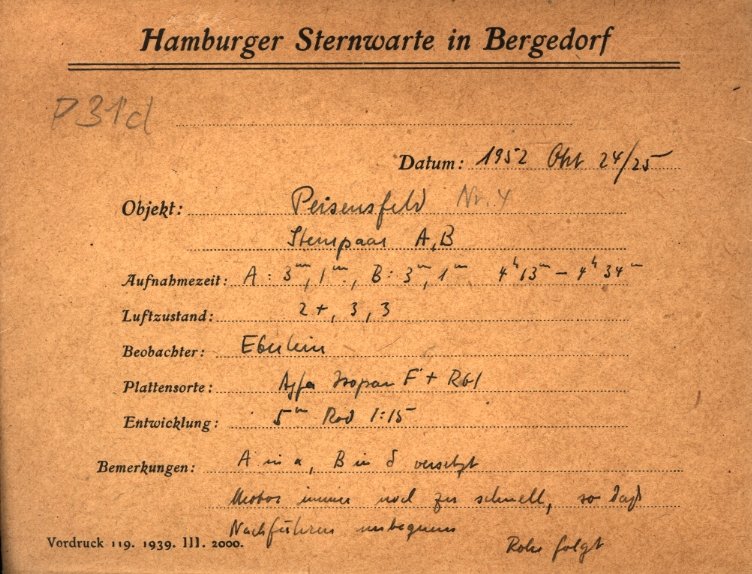 Hamburger Sternwarte in Bergedorf
P31d
Datum: 1952 Okt 24/25
Objekt: Peisensfeld Nr. 4
Sternpaar A, B
Aufnahmezeit: A: 3ᵐ, 1ᵐ, B: 3ᵐ, 1ᵐ 4ʰ 13ᵐ – 4ʰ 34ᵐ
Luftzustand: 2+, 3, 3
Beobachter: Eberlein
Plattensorte: Agfa Isopan F + RG1
Entwicklung: 5ᵐ Rod 1:15
Bemerkungen: A in α, B in δ versetzt
immer noch zu schnell, so daß
Nachführen unbequem
Vordruck 119. 1939. III. 2000.
folgt